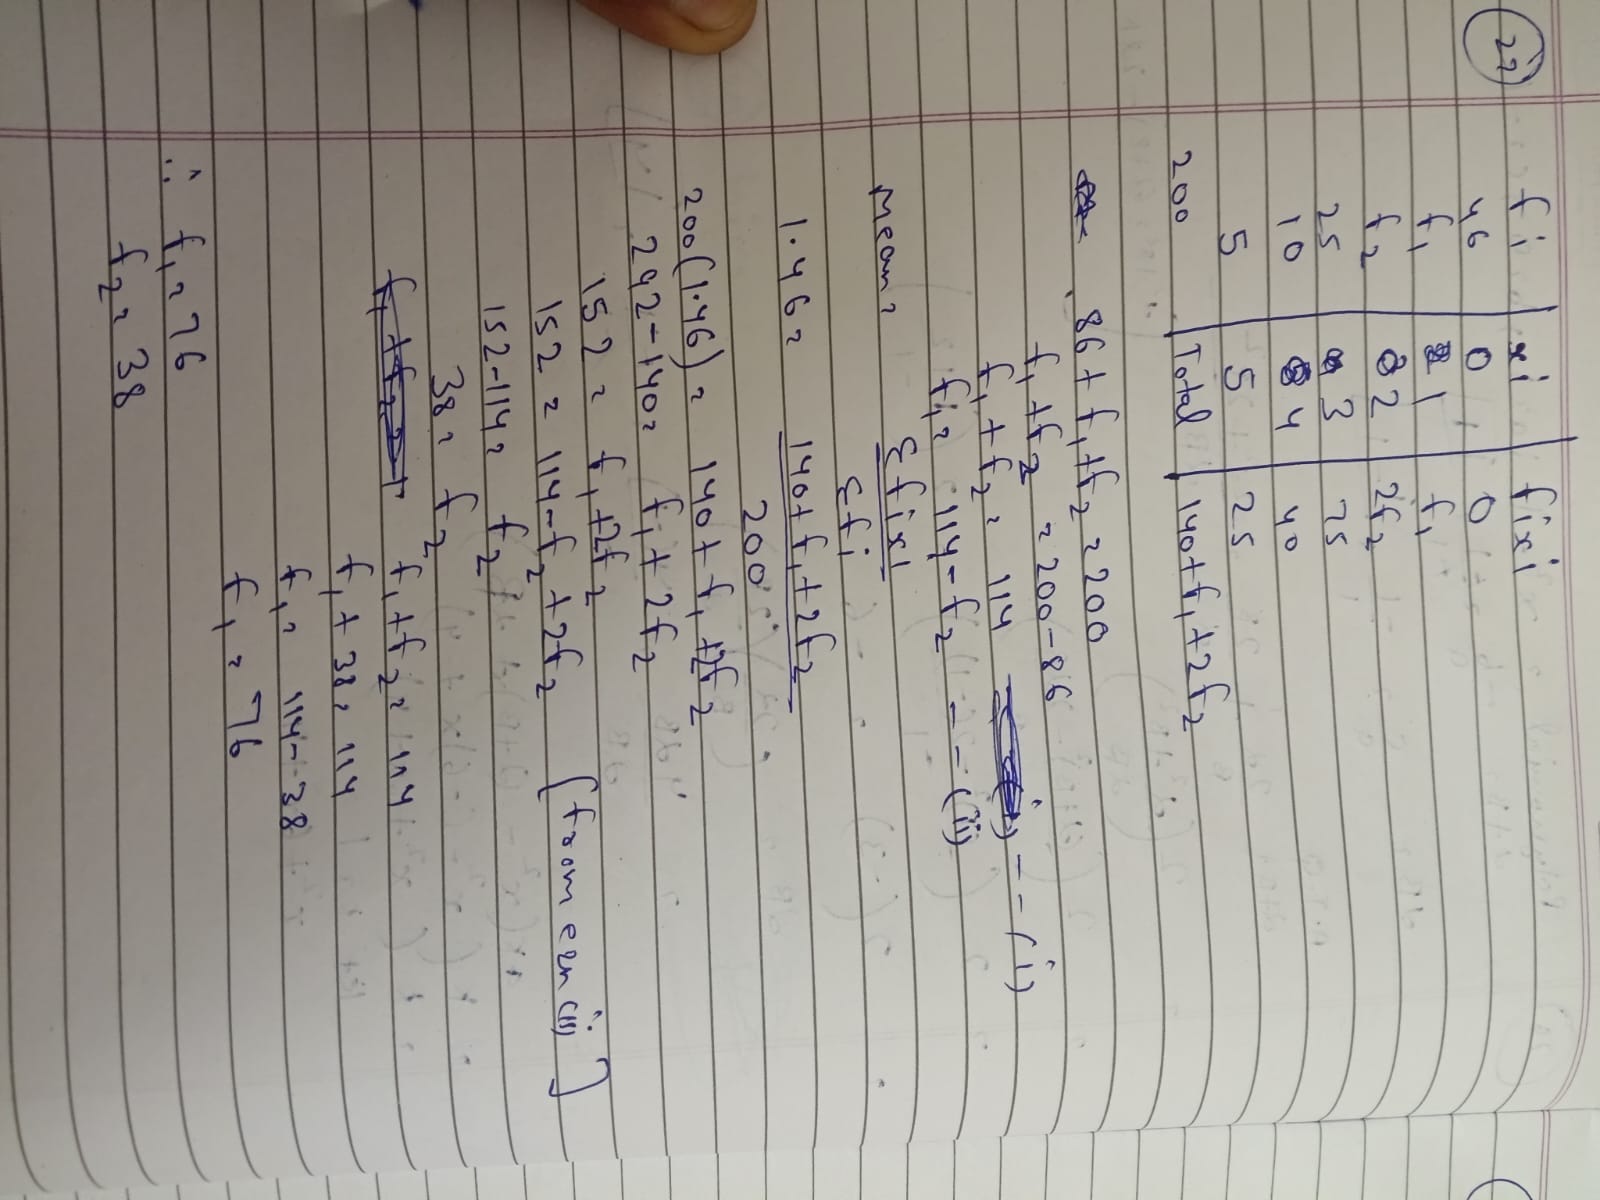 27
fi xi fixi
46 0 0
f1 1 f1
f2 2 2f2
25 3 75
10 4 40
5 5 25
200 Total 140+f1+2f2
86+f1+f2=200
f1+f2=200-86
f1+f2=114 ---(i)
f1=114-f2 ---(ii)
Mean=Σfixi
Σfi
1.46=140+f1+2f2
200
200(1.46)=140+f1+2f2
292-140=f1+2f2
152=f1+2f2
152=114-f2+2f2 [from eqn(ii)]
152-114=f2
38=f2
f1+f2=114
f1+38=114
f1=114-38
f1=76
∴ f1=76
f2=38